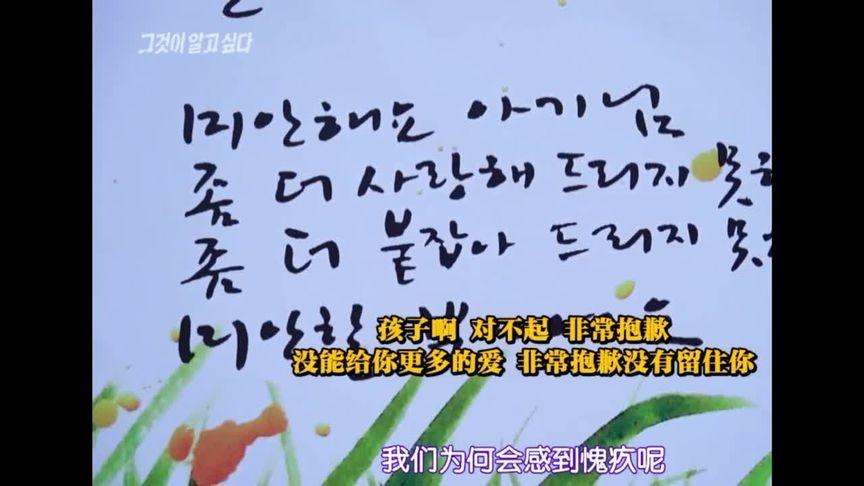 그것이 알고싶다
미안해요 아기님
좀 더 사랑해 드리지 못
좀 더 붙잡아 드리지 못
미안할
孩子啊 对不起 非常抱歉
没能给你更多的爱 非常抱歉没有留住你
我们为何会感到愧疚呢